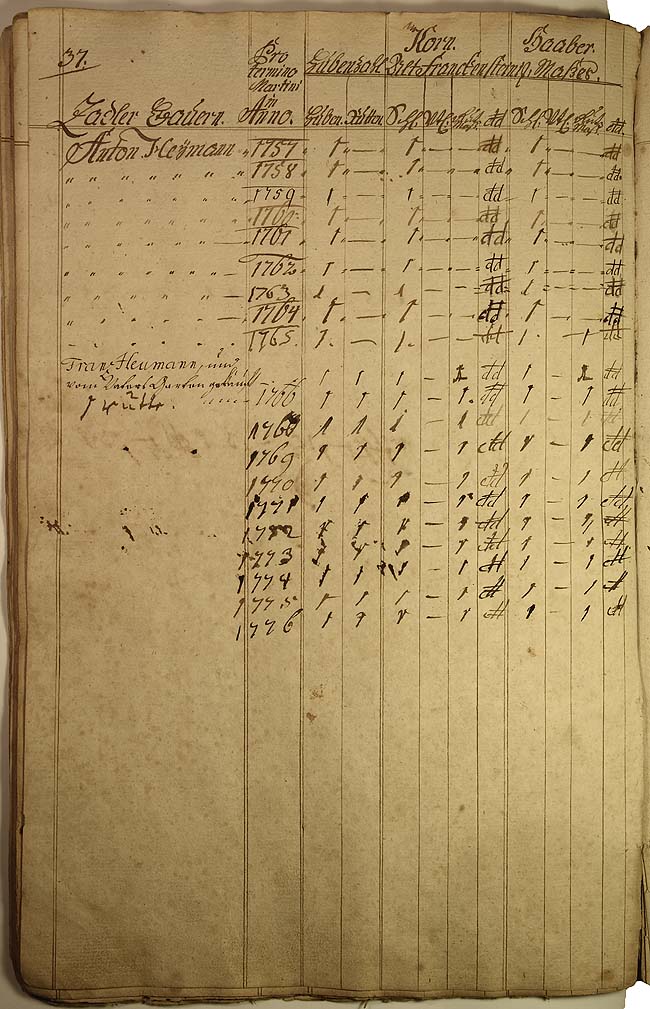 37.
Pro termino Martini in Anno.
Korn.
Haaber.
Hubenzahl Alt Franckensteinß. Maßes.
Zadler Bauern
Huben. Rutten Schl. Vtl. dd Schl. Vtl. dd
Anton Heÿmann 1757 1 1 dd 1 dd
" 1758 1 1 dd 1 dd
" 1759 1 1 dd 1 dd
" 1760 1 1 dd 1 dd
" 1761 1 1 dd 1 dd
" 1762 1 1 dd 1 dd
" 1763 1 1 dd 1 dd
" 1764 1 1 dd 1 dd
" 1765. 1. 1. dd 1 1 dd
Frantz Heumann, und
vom Vaters Garten
1 rutte. 1766 1 1 1 – 1 dd 1 – 1 dd
1 1 1 – 1 dd 1 – 1 dd
1768 1 1 1 – 1 dd 1 – 1 dd
1769 1 1 1 – 1 dd 1 – 1 dd
1770 1 1 1 – 1 dd 1 – 1 dd
1771 1 1 1 – 1 dd 1 – 1 dd
1772 1 1 1 – 1 dd 1 – 1 dd
1773 1 1 1 – 1 dd 1 – 1 dd
1774 1 1 1 – 1 dd 1 – 1 dd
1775 1 1 1 – 1 dd 1 – 1 dd
1776 1 1 1 – 1 dd 1 – 1 dd